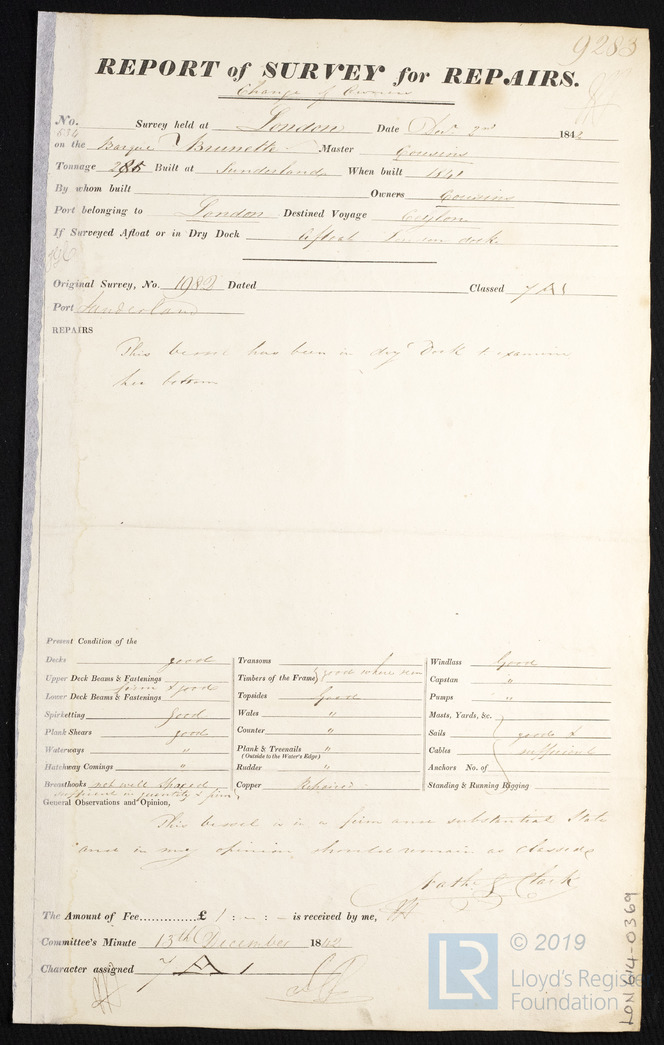 9283
REPORT of SURVEY for REPAIRS.
Change of Owners
No. 634 Survey held at London Date Decr 2nd 1842
on the Barque Brunette Master Cousins
Tonnage 285 Built at Sunderland When built 1841
By whom built Owners Cousins
Port belonging to London Destined Voyage Ceylon
If Surveyed Afloat or in Dry Dock Afloat London dock
Original Survey, No. 1982 Dated Classed 7 A 1
Port Sunderland
REPAIRS
This vessel has been in dry Dock to examine
her bottom
Present Condition of the
Decks good Transoms Windlass Good
Upper Deck Beams & Fastenings Timbers of the Frame good where seen Capstan "
firm & good
Lower Deck Beams & Fastenings Topsides Good Pumps "
Spirketting good Wales " Masts, Yards, &c.
Plank Shears good Counter " Sails good &
Waterways " Plank & Treenails " Cables sufficient
(Outside to the Water's Edge)
Hatchway Comings " Rudder " Anchors No. of
Breasthooks not well spaced Copper Repaired Standing & Running Rigging
sufficient in quantity & firm
General Observations and Opinion,
This vessel is in a firm and substantial State
and in my opinion should remain as classed
Nathl Clark
The Amount of Fee.............. £ 1 : - : - is received by me,
Committee's Minute 13th December 1842
Character assigned 7 A 1
LR
© 2019
Lloyd's Register
Foundation
LON 614-0369